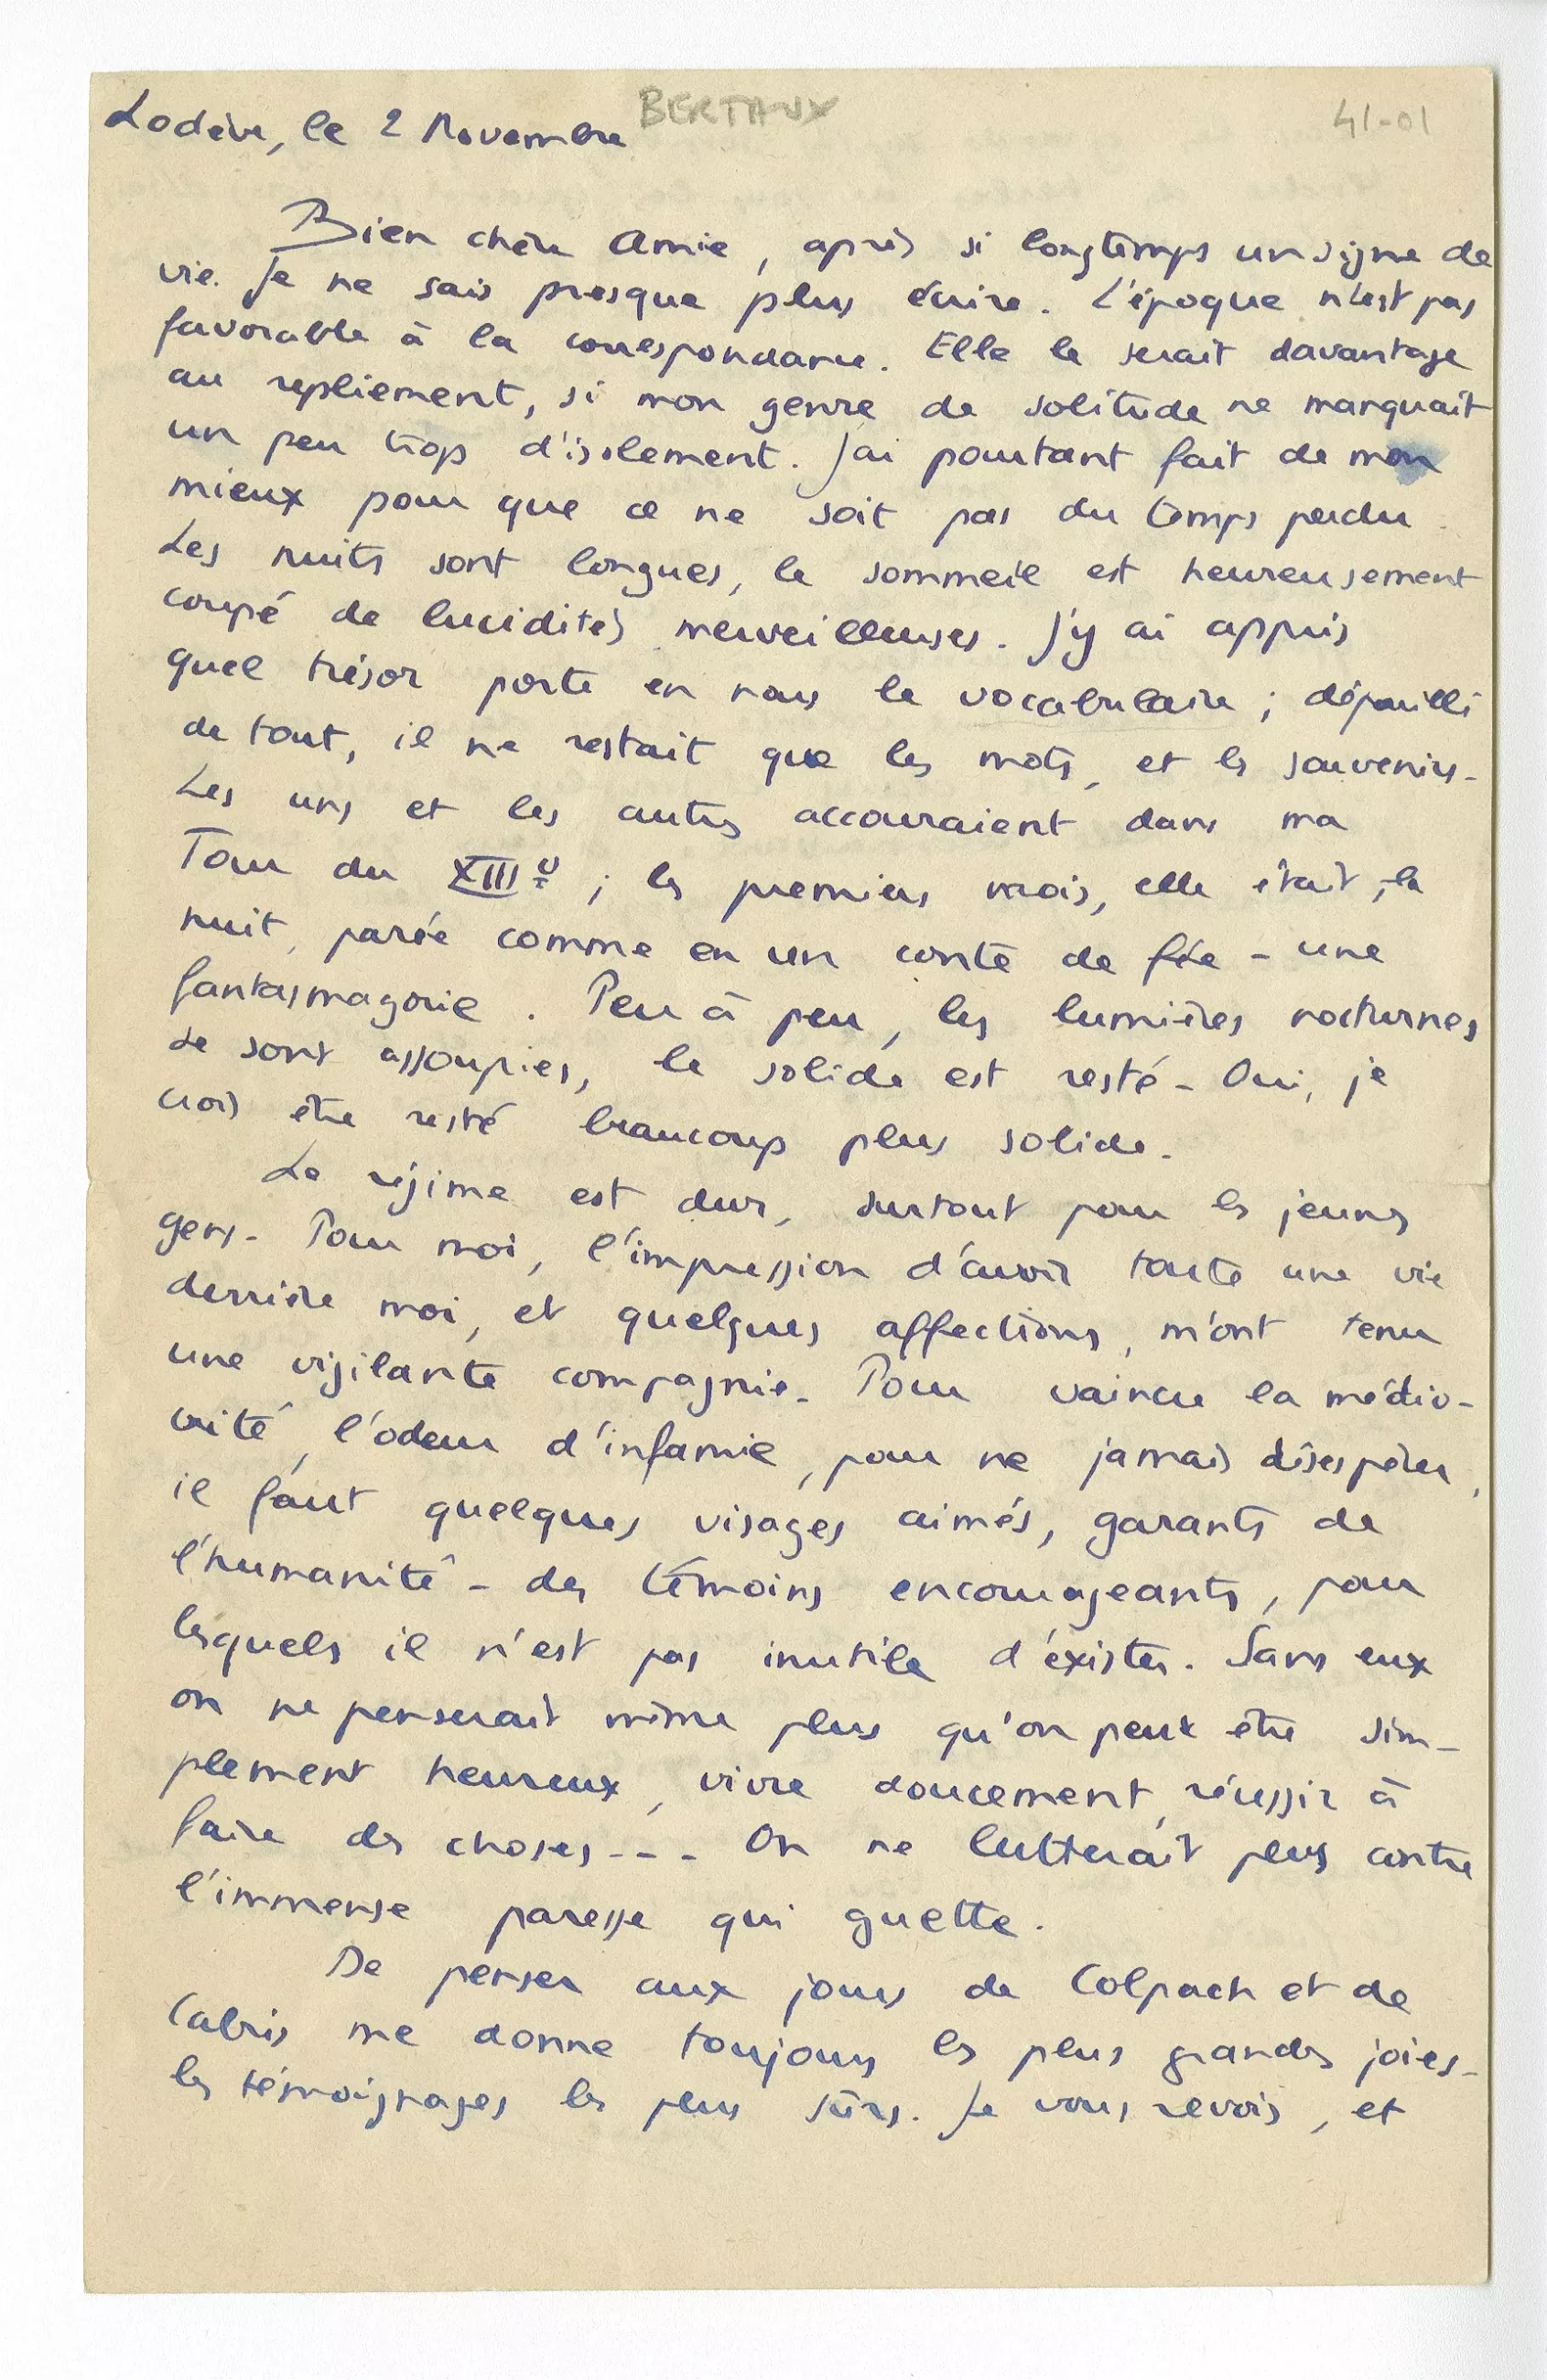 Lodève, le 2 Novembre BERTAUX 41-01
Bien chère Amie, après si longtemps un signe de
vie. Je ne sais presque plus écrire. L'époque n'est pas
favorable à la correspondance. Elle le serait davantage
au repliement, si mon genre de solitude ne manquait
un peu trop d'isolement. J'ai pourtant fait de mon
mieux pour que ce ne soit pas du temps perdu.
Les nuits sont longues, le sommeil est heureusement
coupé de lucidités merveilleuses. J'y ai appris
quel trésor porte en nous le vocabulaire ; dépouillé
de tout, il ne restait que les mots, et les souvenirs.
Les uns et les autres accouraient dans ma
Tour du XIIIe ; les premiers mois, elle était, la
nuit, parée comme en un conte de fée - une
fantasmagorie. Peu à peu, les lumières nocturnes
se sont assoupies, le solide est resté - Oui, je
crois être resté beaucoup plus solide.
Le régime est dur, surtout pour les jeunes
gens. Pour moi, l'impression d'avoir toute une vie
derrière moi, et quelques affections, m'ont tenu
une vigilante compagnie. Pour vaincre la médio-
crité, l'odeur d'infamie, pour ne jamais désespérer,
il faut quelques visages aimés, garants de
l'humanité - des témoins encourageants, pour
lesquels il n'est pas inutile d'éxister. Sans eux
on ne penserait même plus qu'on peut être sim-
plement heureux, vivre doucement, réussir à
faire des choses --- On ne lutterait plus contre
l'immense paresse qui guette.
De penser aux jours de Colpach et de
Cabris me donne toujours les plus grandes joies -
les témoignages les plus sûrs. Je vous revois, et